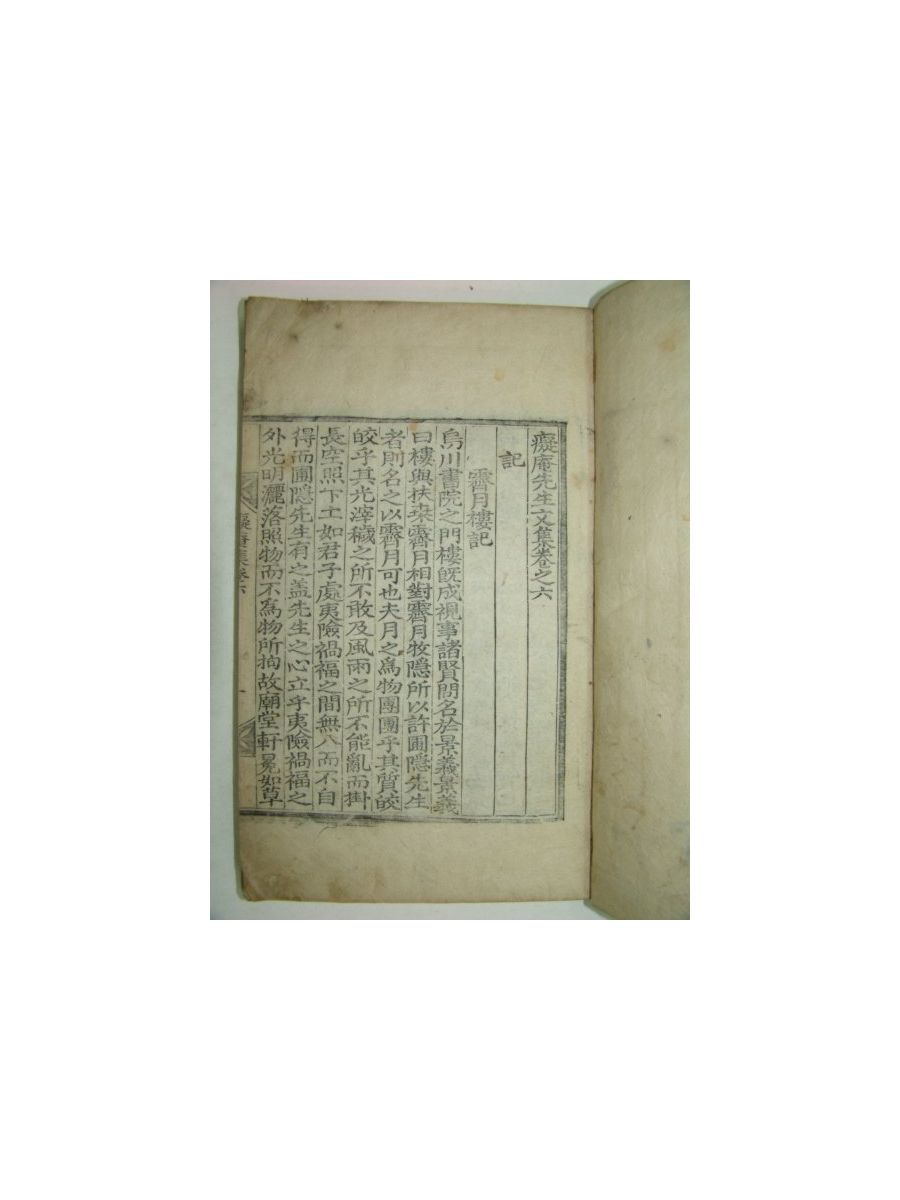 癡庵先生文集卷之六
記
霽月樓記
烏川書院之門樓旣成視事諸賢問名於景義景義
曰樓與扶桑霽月相對霽月牧隱所以許圃隱先生
者則名之以霽月可也夫月之爲物團團乎其質皎
皎乎其光滓穢之所不敢及風雨之所不能亂而掛
長空照下土如君子處夷險禍福之間無入而不自
得而圃隱先生有之盖先生之心立乎夷險禍福之
外光明灑落照物而不爲物所拘故廟堂軒冕如草
癡庵集卷六